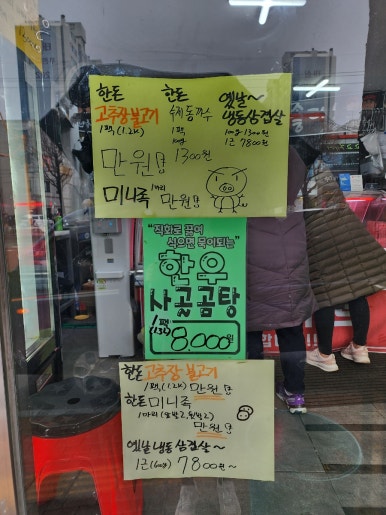 한돈 한돈 옛날~
고추장불고기 수제돈까스 냉동삼겹살
1팩(1.2k) 1팩 100g 1300원
100g 1근 7800원
만원 1300원
미니족 1마리 만원
"직화로 끓여
식으면 묵이되는"
한우
사골곰탕
1팩 8,000원
한돈고추장불고기
1팩(1.2k) 만원
한돈미니족
만원
옛날냉동삼겹살~
1근(600g) 7800원~